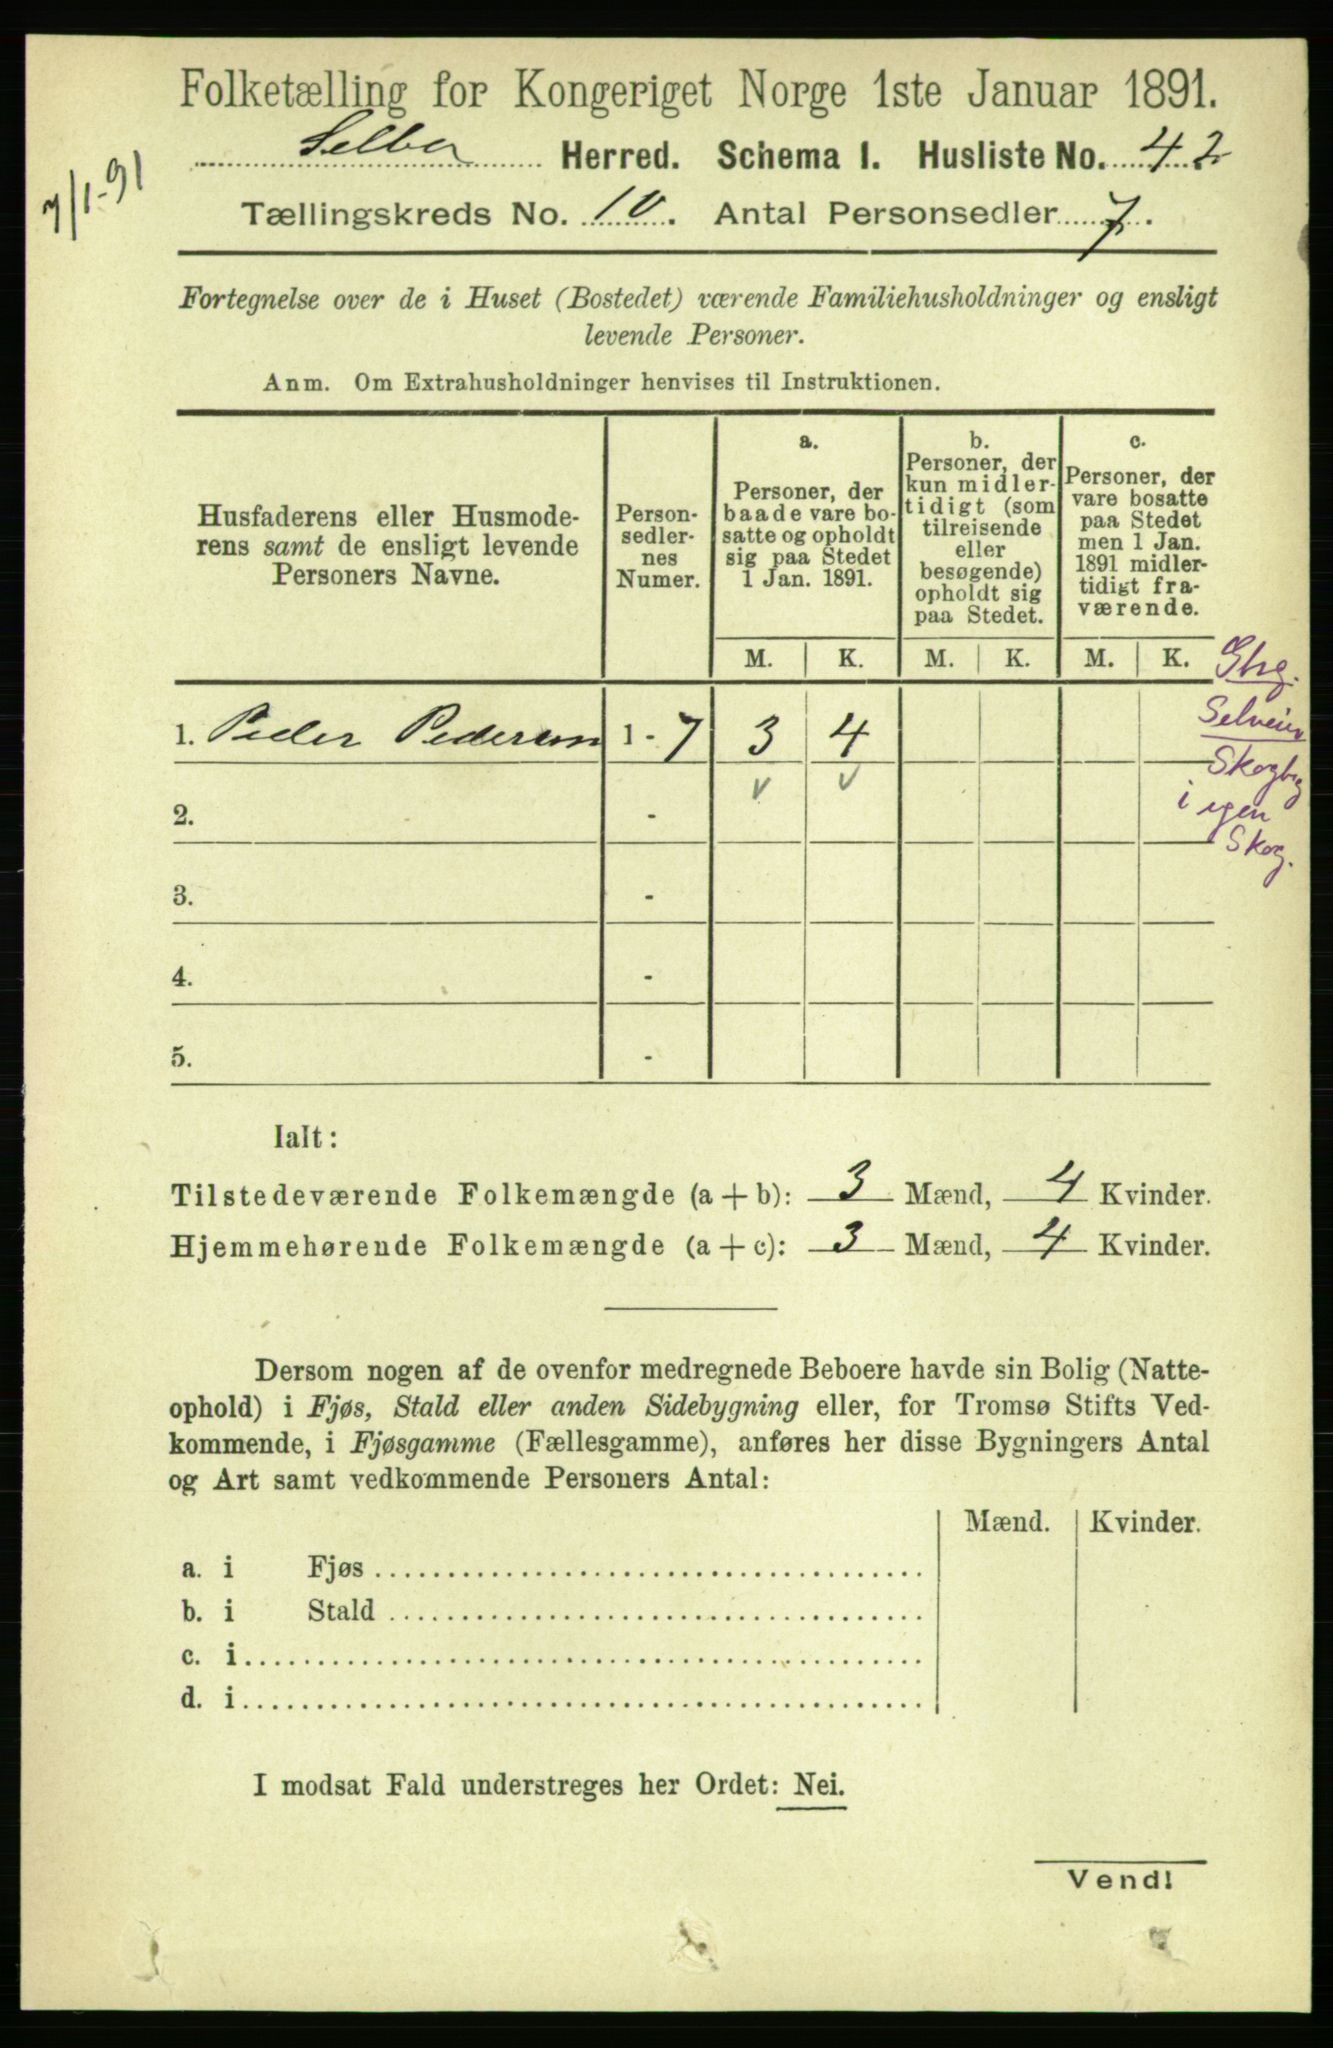 Folketælling for Kongeriget Norge 1ste Januar 1891.
7/1-91
Selbu Herred. Schema 1. Husliste No. 42
Tællingskreds No. 10. Antal Personsedler 7.
Fortegnelse over de i Huset (Bostedet) værende Familiehusholdninger og ensligt
levende Personer.
Anm. Om Extrahusholdninger henvises til Instruktionen.
Husfaderens eller Husmode-
rens samt de ensligt levende
Personers Navne.
Person-
sedler-
nes
Numer.
a.
Personer, der
baade vare bo-
satte og opholdt
sig paa Stedet
1 Jan. 1891.
b.
Personer, der
kun midler-
tidigt (som
tilreisende
eller
besøgende)
opholdt sig
paa Stedet.
c.
Personer, der
vare bosatte
paa Stedet
men 1 Jan.
1891 midler-
tidigt fra-
værende.
M. K. M. K. M. K.
Gbrg.
Selveier
Skogbrg
i egen
Skog.
1. Peder Pedersen 1 - 7 3 4
2. -
3. -
4. -
5. -
Ialt:
Tilstedeværende Folkemængde (a + b): 3 Mænd, 4 Kvinder.
Hjemmehørende Folkemængde (a + c): 3 Mænd, 4 Kvinder.
Dersom nogen af de ovenfor medregnede Beboere havde sin Bolig (Natte-
ophold) i Fjøs, Stald eller anden Sidebygning eller, for Tromsø Stifts Ved-
kommende, i Fjøsgamme (Fællesgamme), anføres her disse Bygningers Antal
og Art samt vedkommende Personers Antal:
Mænd. Kvinder.
a. i Fjøs
b. i Stald
c. i
d. i
I modsat Fald understreges her Ordet: Nei.
Vend!